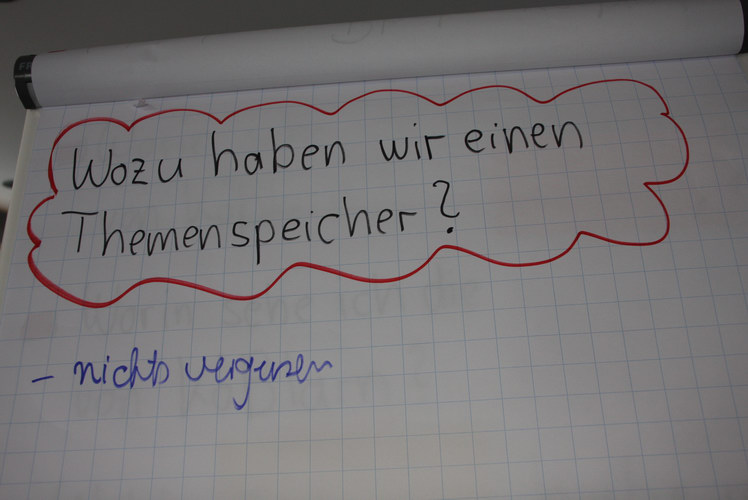 Wozu haben wir einen
Themenspeicher?
- nichts vergessen